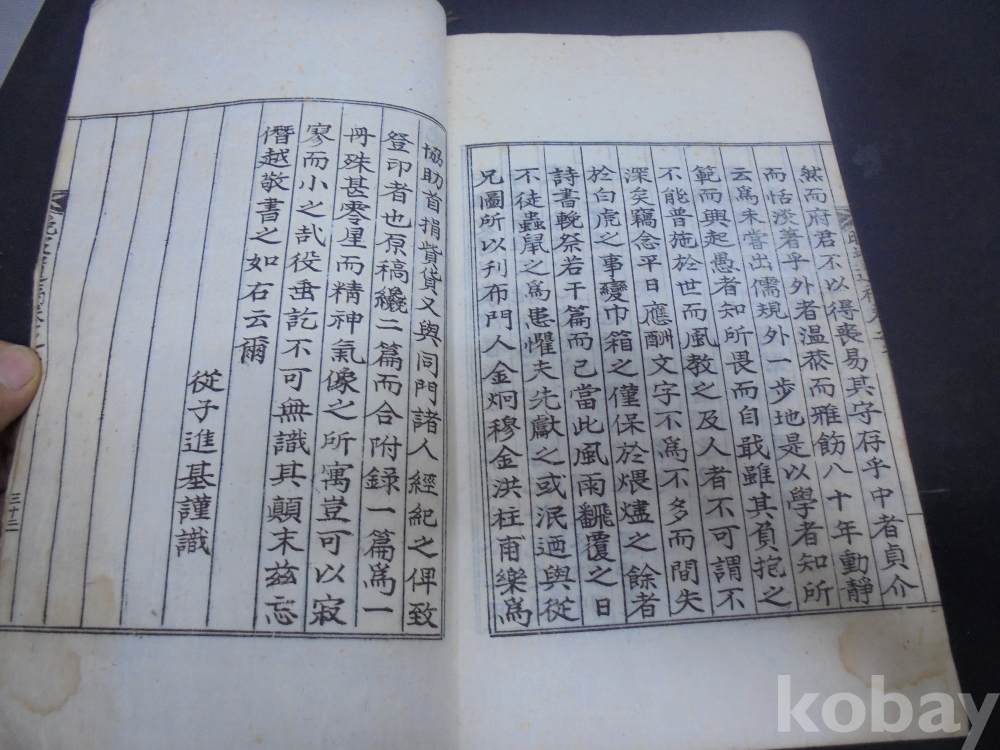 然而府君不以得喪易其守存乎中者貞介
而恬淡著乎外者溫恭而雅飭八十年動靜
云爲未嘗出儒規外一步地是以學者知所
範而興起愚者知所畏而自戢雖其負抱之
不能普施於世而風教之及人者不可謂不
深矣竊念平日應酬文字不爲不多而間失
於白虎之事變巾箱之僅保於煨燼之餘者
詩書輓祭若干篇而已當此風雨飜覆之日
不徒蟲鼠之爲患懼夫先獻之或泯迺與從
兄圖所以刊布門人金炯穆金洪柱甫樂爲
協助首捐貲貨又與同門諸人經紀之俾致
登印者也原稿纔二篇而合附錄一篇爲一
冊殊甚零星而精神氣像之所寓豈可以寂
寥而小之哉役垂訖不可無識其顛末玆忘
僭越敬書之如右云爾
從子進基謹識
三十二
kobay